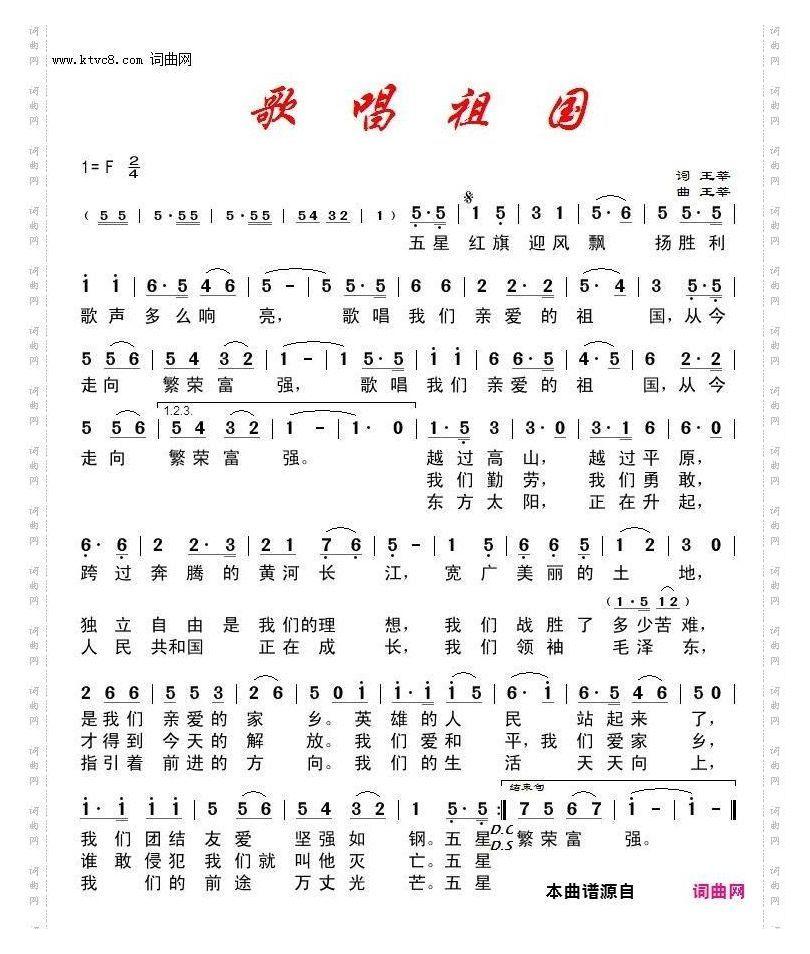 www.ktvc8.com 词曲网
歌唱祖国
1=F 2/4
词 王莘
曲 王莘
( 5 5 | 5·55 | 5·55 | 54 32 | 1 ) 5·5 | 1 5 | 3 1 | 5·6 | 5 5·5 |
五星 红旗 迎风 飘 扬胜利
1 1 | 6·5 4 6 | 5 - | 5 5·5 | 6 6 | 2 2·2 | 5·4 | 3 5·5 |
歌声多么响 亮， 歌唱我们亲爱的祖 国，从今
5 5 6 | 5 4 3 2 | 1 - | 1 5·5 | 1 1 | 6 6·5 | 4·5 | 6 2·2 |
走向 繁荣富 强， 歌唱我们亲爱的祖 国，从今
1.2.3.
5 5 6 | 5 4 3 2 | 1 - | 1· 0 | 1·5 3 | 3·0 | 3·1 6 | 6·0 |
走向 繁荣富 强。 越过高山， 越过平原，
我们勤劳，我们勇敢，
东方太阳， 正在升起，
6·6 | 2 2·3 | 2 1 7 6 | 5 - | 1 5 | 6 6 5 | 1 2 | 3 0 |
跨过奔腾的黄河长 江， 宽广美丽的土 地，
(1·5 12)
独立自由是我们的理 想， 我们战胜了多少苦难，
人民共和国 正在成 长，我们领袖 毛泽东，
2 6 6 | 5 5 3 | 2 2 1 | 5 0 1 | 1·1 1 5 | 6·1 | 5·5 4 6 | 5 0 |
是我们亲爱的家 乡。英雄的人 民 站起来了，
才得到今天的解 放。我们爱和 平，我们爱家乡，
指引着前进的方 向。我们的生 活 天天向上，
结束句
1·1 | 1 5 5 | 5 5 6 | 5 4 3 2 | 1 | 1 5·5 :| 7 5 6 7 | 1 - | 1 - ||
我们团结友爱 坚强如 钢。五星 D.C 繁荣富 强。
谁敢侵犯我们就叫他灭 亡。五星 D.S
我 们的前途 万丈光 芒。五星
本曲谱源自 词曲网